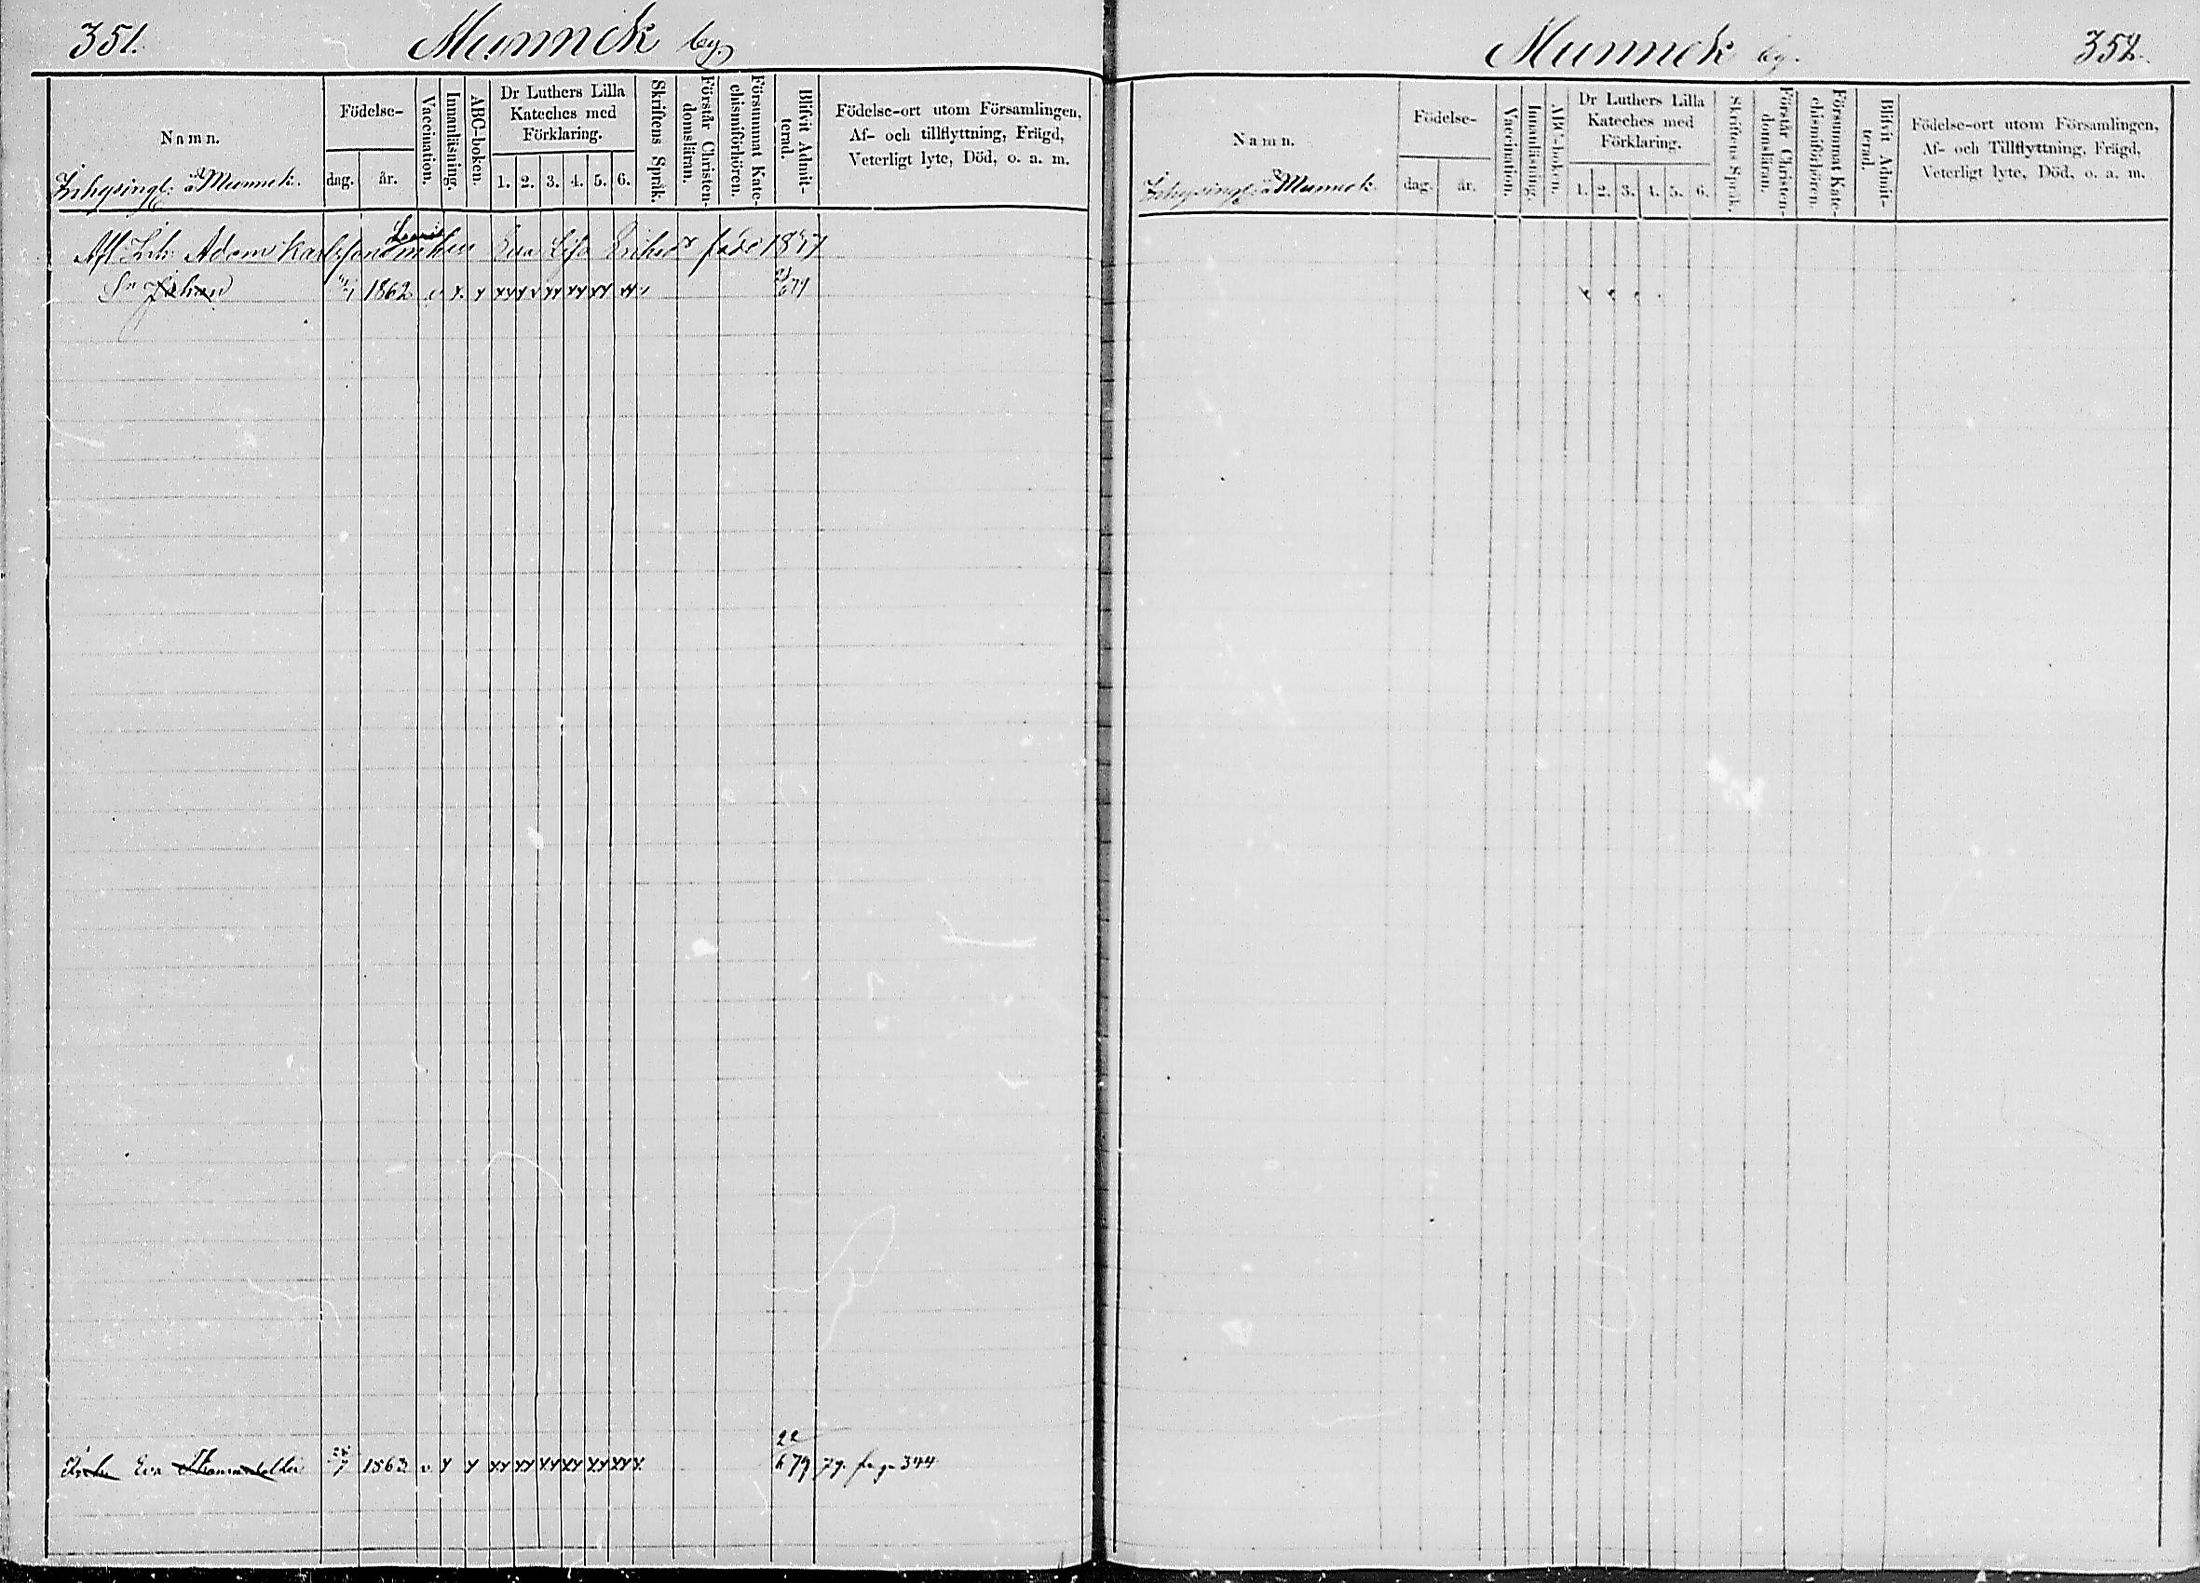 351.
Munnek by.
Namn.
Födelse-
dag.
år.
Vaccination.
Innanläsning.
ABC-boken.
Dr Luthers Lilla
Kateches med
Förklaring.
1. 2. 3. 4. 5. 6.
Skriftens Språk.
Förstår Christen-
domsläran.
Försummat Kate-
chismiförhören.
Blifvit Admit-
terad.
Födelse-ort utom Församlingen,
Af- och tillflyttning, Frägd,
Veterligt lyte, Död, o. a. m.
Inhysingl: å Munnek.
Afl. Inh. Adam Karlsson Eva Lisa Eriksdr
Sn Johan 1862 v x x xx xx xx xx xx
Eva 1863 v x x xx xx xx xx xx xx x 22/6 79 79. pag. 344
Munnek by.
352.
Namn.
Födelse-
dag.
år.
Vaccination.
Innanläsning.
ABC-boken.
Dr Luthers Lilla
Kateches med
Förklaring.
1. 2. 3. 4. 5. 6.
Skriftens Språk.
Förstår Christen-
domsläran.
Försummat Kate-
chismiförhören.
Blifvit Admit-
terad.
Födelse-ort utom Församlingen,
Af- och Tillflyttning, Frägd,
Veterligt lyte, Död, o. a. m.
Inhysingl: å Munnek.